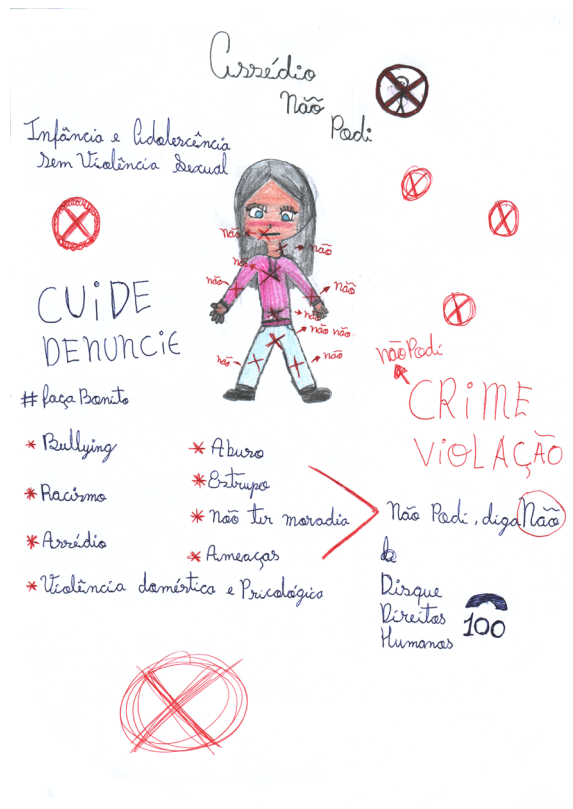 Assédio
Não
Podi
Infância e Adolescência
sem Violência Sexual
Não
não
não
não
não
não
não não
não
não
CUIDE
DENUNCIE
#façaBonito
* Bullying
* Racismo
* Assédio
* Violência doméstica e Psicológica
* Abuso
* Estrupo
* Não ter moradia
* Ameaças
nãoPodi
CRIME
VIOLAÇÃO
Não Podi, diga Não
Disque
Direitos
Humanos 100